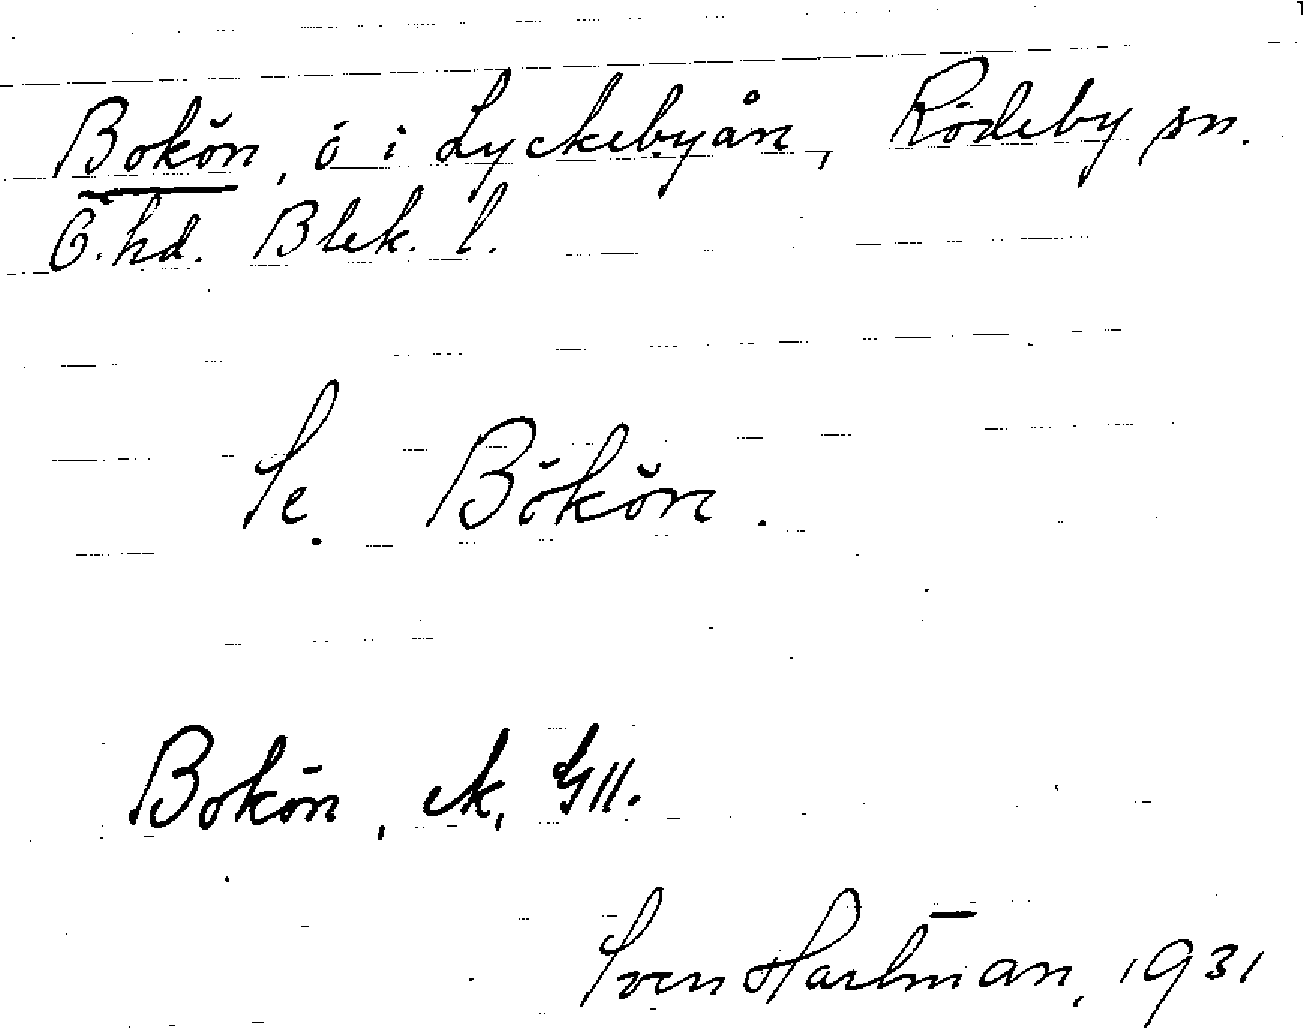 Bokön, ö i Lyckebyån, Rödeby sn.
Ö. hd. Blek. l.
Se Bökön.
Bokön, ek, G11.
Sven Hartman, 1931